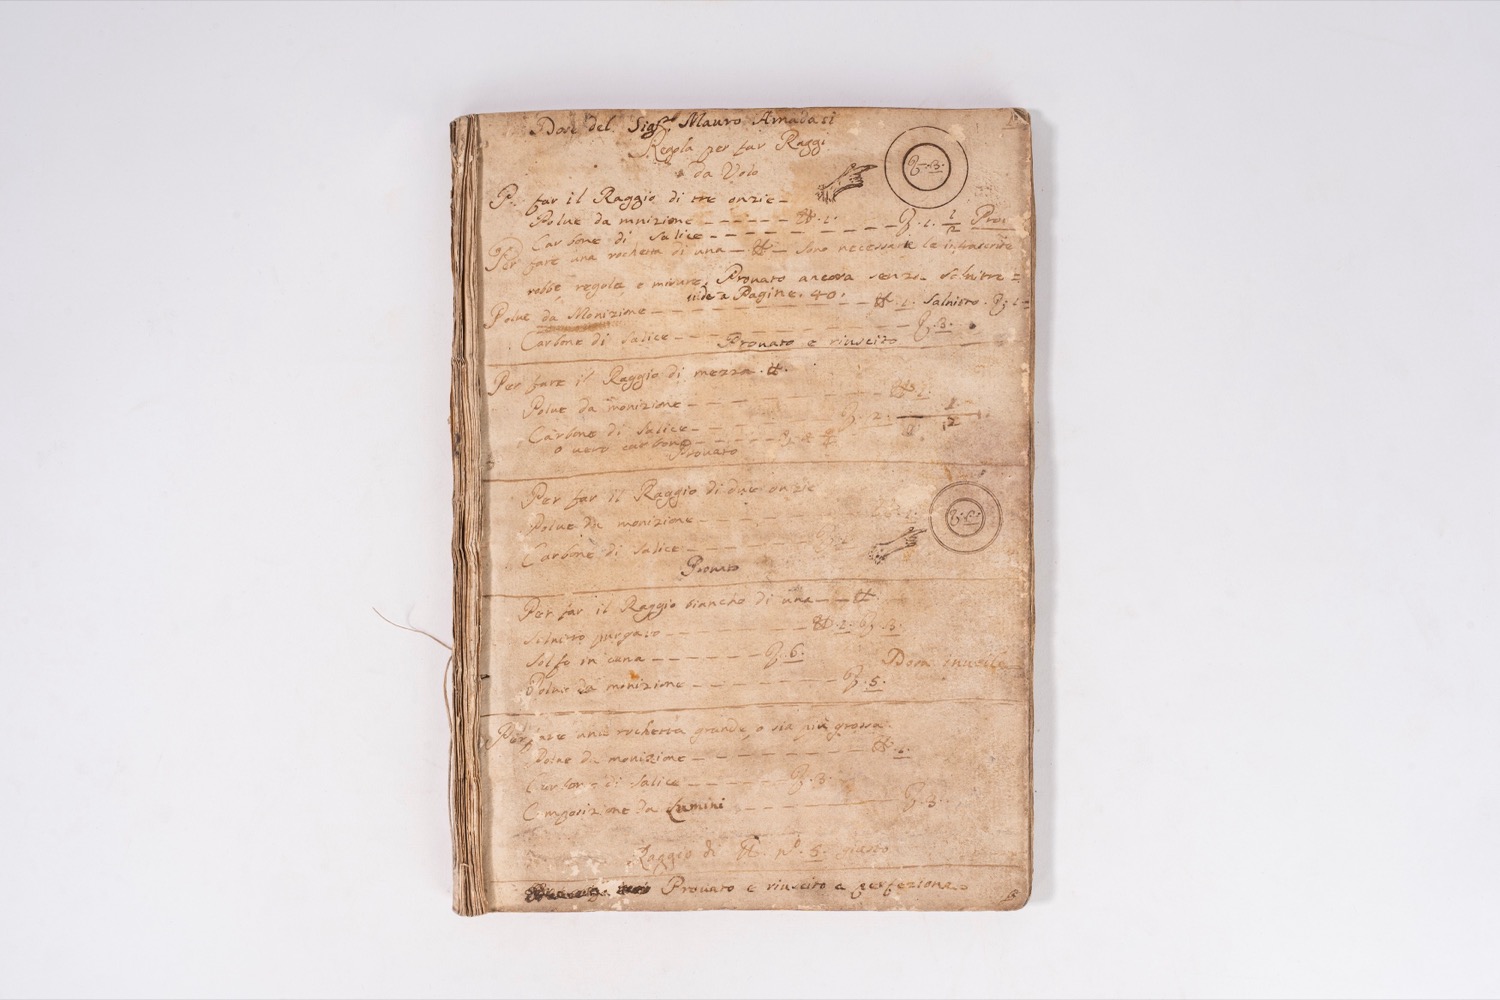 Dose del Sigr. Mauro Amadasi
Regola per far Raggi
da Volo
3.
P. far il Raggio di tre onzie
Polue da munizione 1.
Carbone di Salice 1. 1/2 Prou
Per fare una rochetta di una sono necessarie le infrascritte
robbe, regola, e misure, Prouato ancora senza Salnitro
uide a Pagine. 40.
Polue da Monizione 1. Salnitro. 1
Carbone di Salice 3.
Prouato e riuscito
Per fare il Raggio di mezza
Polue da monizione 1.
Carbone di Salice 2. 1/2
o uero carbone
Prouato
Per far il Raggio di due onzie
Polue da monizione
Carbone di Salice
Prouato
Per far il Raggio biancho di una
Salnitro purgato 3.
Solfo in cana 6.
Dose inutile
Polue da monizione 5.
Per fare una rochetta grande, o sia più grossa
Polue da monizione 1.
Carbone di Salice 3.
Composizione da Lumini 3.
Raggio di no. 8. giusto
Prouato e riuscito a perfezione